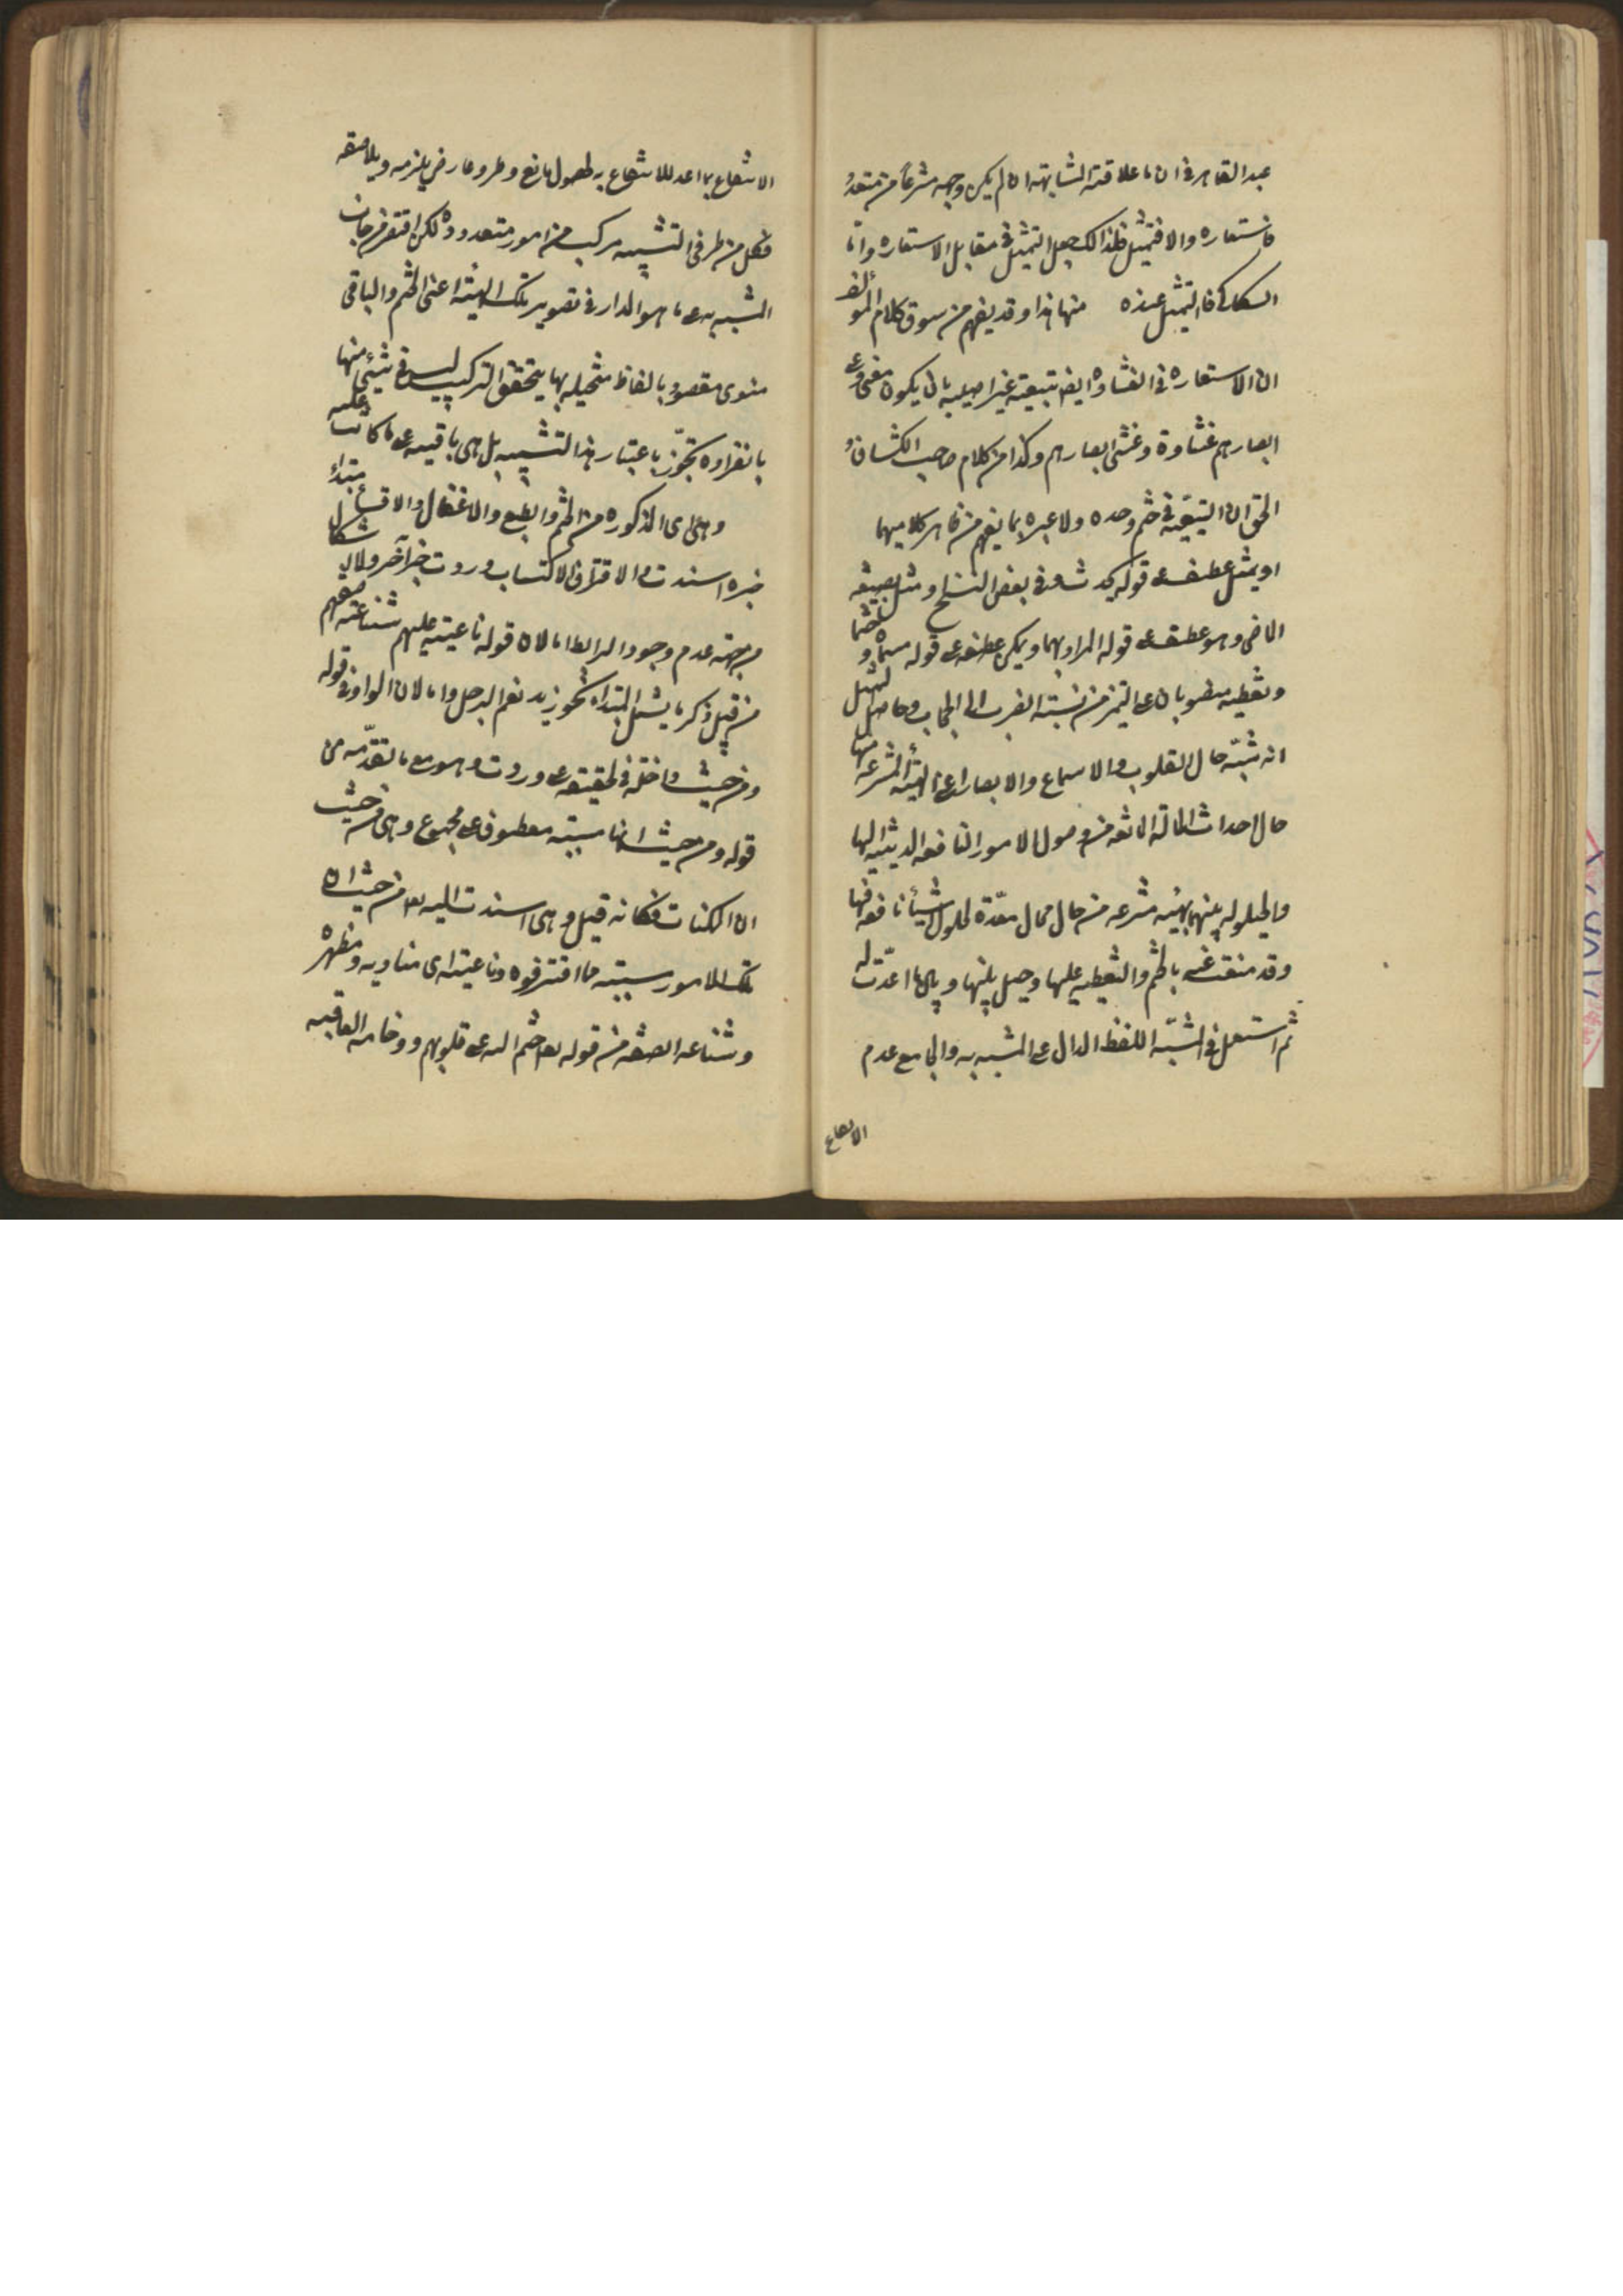 عبد القاهر في ان ما علاقته المشابهة ان لم يكن وجهه منتزعا من متعدد
فاستعاره والا فتمثيل فلذالك جعل التمثيل في مقابل الاستعاره واما
السكاكي فالتمثيل عنده منها هذا وقد يفهم من سوق كلام المؤلف
ان الاستعاره في الغشاوه ايضا تبعية غير اصلية بان يكون معنى وعلى
ابصارهم غشاوة وغشى ابصارهم وكذا من كلام صاحب الكشاف
الحق ان التبعية في ختم وحده ولا عبره بما يفهم من ظاهر كلاميهما
او يمثل عطف على قوله يحدث وفي بعض النسخ او مثل بصيغه
الماضى وهو عطف على قوله المراد بهما ويمكن عطفه على قوله سماه و ختما
وتغطيه منصوبان على التميز من نسبة الضرب الى الحجاب وحاصل التمثيل
انه شبه حال القلوب والاسماع والابصار اعنى الهيئة المنتزعه منها
حال احداث الحاله المانعه من وصول الامور النافعه الدينيه اليها
والحيلوله بينهما بهيئه منتزعه من حال محال معدة لحلول اشياء نافعه فيها
وقد منعت عنه بالختم والتغطيه عليها وحيل بينها وبين ما اعدت له
ثم استعمل في المشبه اللفظ الدال على المشبه به والجامع عدم
الانتفاع
الانتفاع بما اعد للانتفاع به لحصول مانع وطرو عارض يلزمه ويلاصقه
فكل من طرفى التشبيه مركب من امور متعدده لكن اقتصر من جانب
المشبه به على ما هو المدار في تصوير تلك الهيئة اعنى الختم والباقى
منوى مقصود بالفاظ متخيله بها يتحقق التركيب ليس في شيئ منها
بانفراده تجوز باعتبار هذا التشبيه بل هى باقيه على ما كانت عليه
وهى اى المذكوره من الختم والطبع والاغفال والاقساء مبتداء
خبره اسندت والاقتراف الاكتساب وردت خبر آخر ولا اشكال
من جهة عدم وجود الرابط اما لان قوله ناعية عليهم شناعة صفتهم
من قبيل ذكر ما يشمل المبتداء نحو زيد نعم الرجل واما لان الواو في قوله
ومن حيث داخله في الحقيقه على وردت وهو مع ما تقدمه من
قوله ومن حيث انها مسببه معطوف على مجموع وهى من حيث
ان الممكنات فكانه قيل وهى اسندت اليه تع من حيث ان
تلك الامور مسببه مما اقترفوه وناعية اى مناديه ومظهره
وشناعه الصفه من قوله تع ختم الله على قلوبهم ووخامه العاقبه